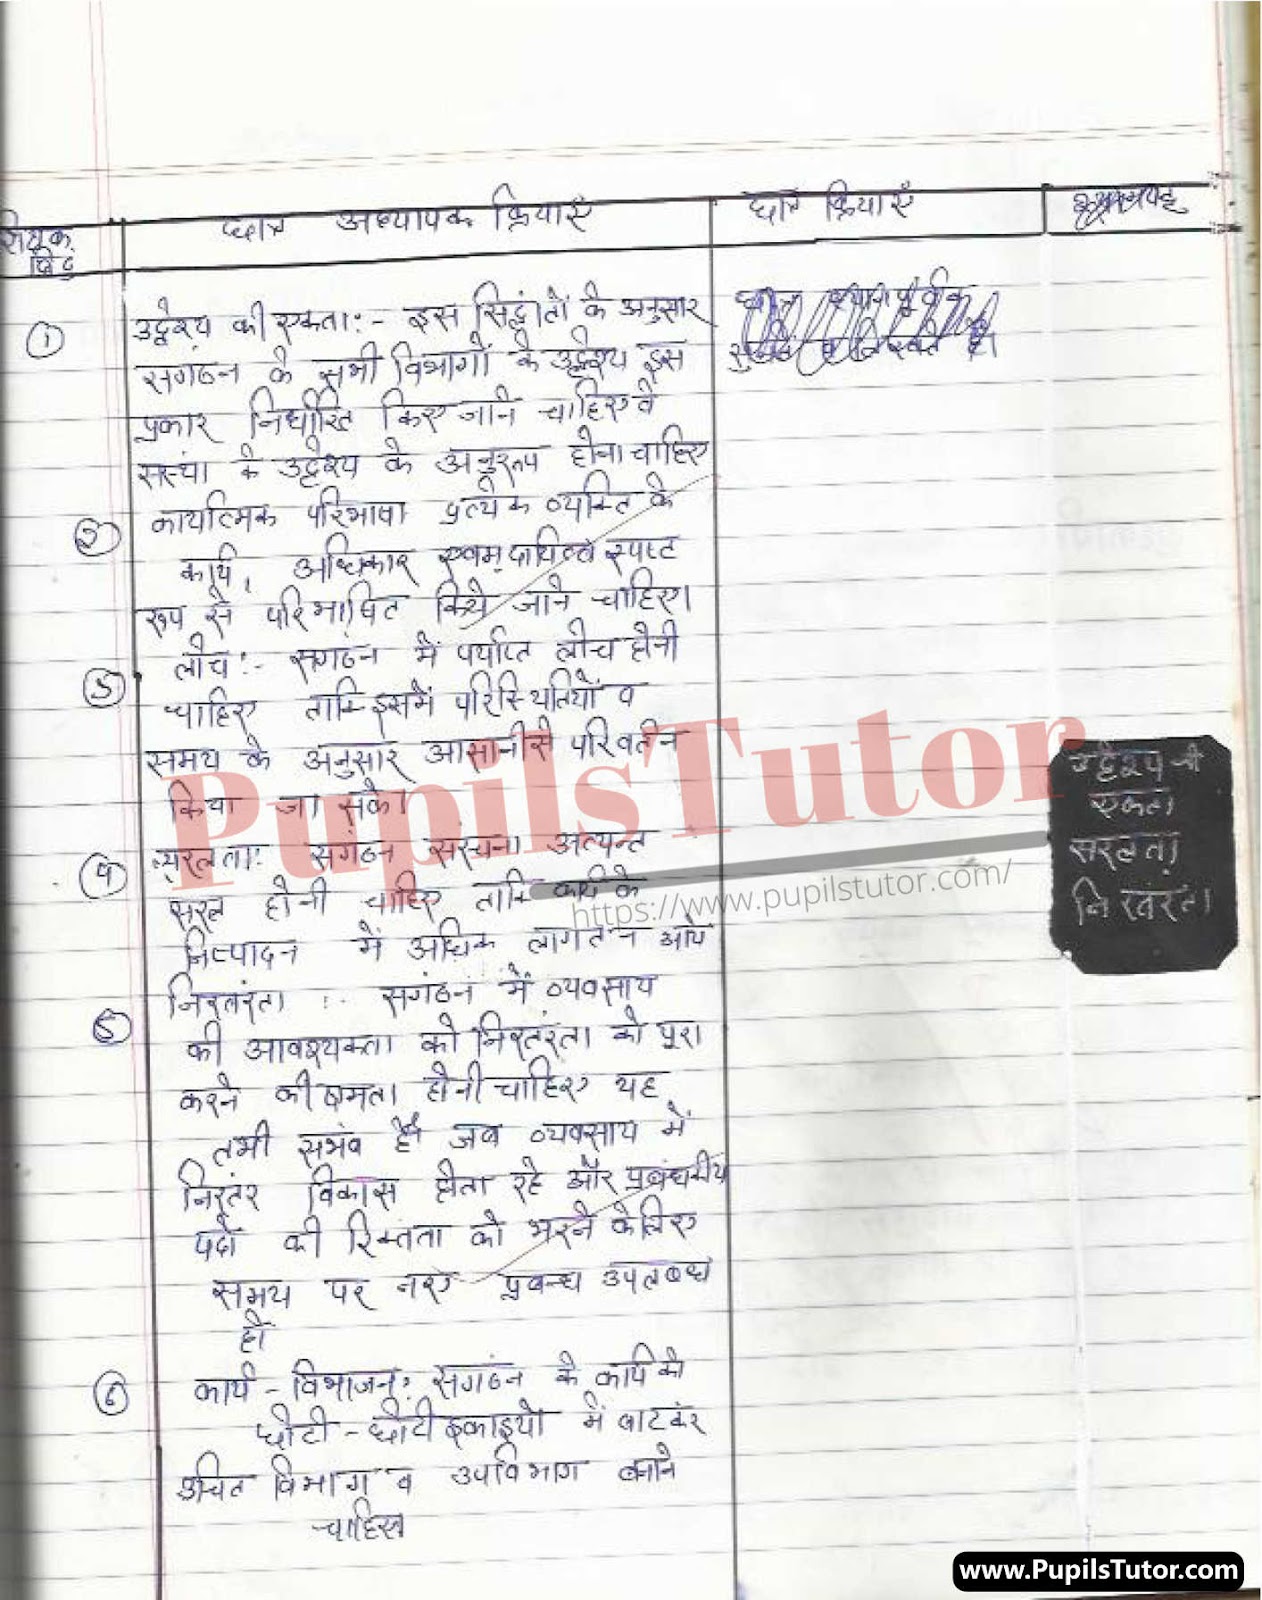 शिक्षक
बिंदु
छात्र अध्यापक क्रियाएँ
छात्र क्रियाएँ
①
उद्देश्य की एकता:- इस सिद्धांतों के अनुसार
सगंठन के सभी विभागों के उद्देश्य इस
प्रकार निर्धारित किए जाने चाहिए वे
सस्था के उद्देश्य के अनुरूप होना चाहिए
②
कार्यात्मक परिभाषा प्रत्येक व्यक्ति के
कार्य, अधिकार एवम् दायित्व स्पष्ट
रूप से परिभाषित किये जाने चाहिए।
③
लोच:- सगंठन में पर्याप्त लोच होनी
चाहिए ताकि इसमें परिस्थितियों व
समय के अनुसार आसानी से परिवर्तन
किया जा सके।
④
सरलता: सगंठन सरंचना अत्यन्त
सरल होनी चाहिए ताकि कार्य के
निष्पादन में अधिक लागत न आये
⑤
निरतंरता :- सगंठन में व्यवसाय
की आवश्यकता को निरतंरता को पूरा
करने की क्षमता होनी चाहिए यह
तभी सभंव है जब व्यवसाय में
निरतंर विकास होता रहे और प्रबंधकीय
पदों की रिक्तता को भरने के लिए
समय पर नए प्रबन्ध उपलबध
हो
⑥
कार्य - विभाजन: सगंठन के कार्य को
छोटी - छोटी इकाइयो में बाटकर
उचित विभाग व उपविभाग बनाने
चाहिए
उद्देश्य की
एकता
सरलता
निरतंरता
PupilsTutor
https://www.pupilstutor.com/
www.PupilsTutor.com